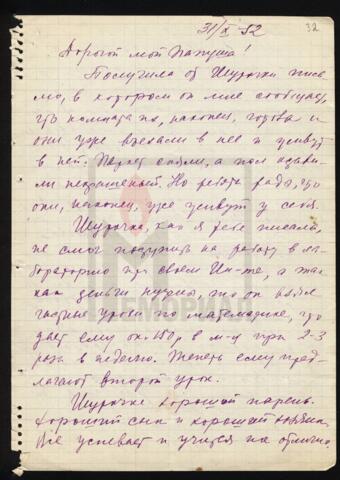 31/X 52
32
Дорогой мой Папуша!
Получила от Шурочки пись-
мо, в котором он мне сообщает,
что комната их, наконец, готова и
они уже въехали в нее и живут
в ней. Паркет сняли, а пол
некрашеный. Но ребята рады, что
они, наконец, уже живут у себя.
Шурочка, как я тебе писала,
не смог поступить на работу в ла-
бораторию при своем Ин-те, а так
как деньги нужны, то он взял
частные уроки по математике, что
дает ему ок. 150 р в м-ц при 2-3
раза в неделю. Теперь ему пред-
лагают второй урок.
Шурочка хороший парень.
Хороший сын и хороший
Всё успевает и учится на отлично.
МЕМОРИАЛ